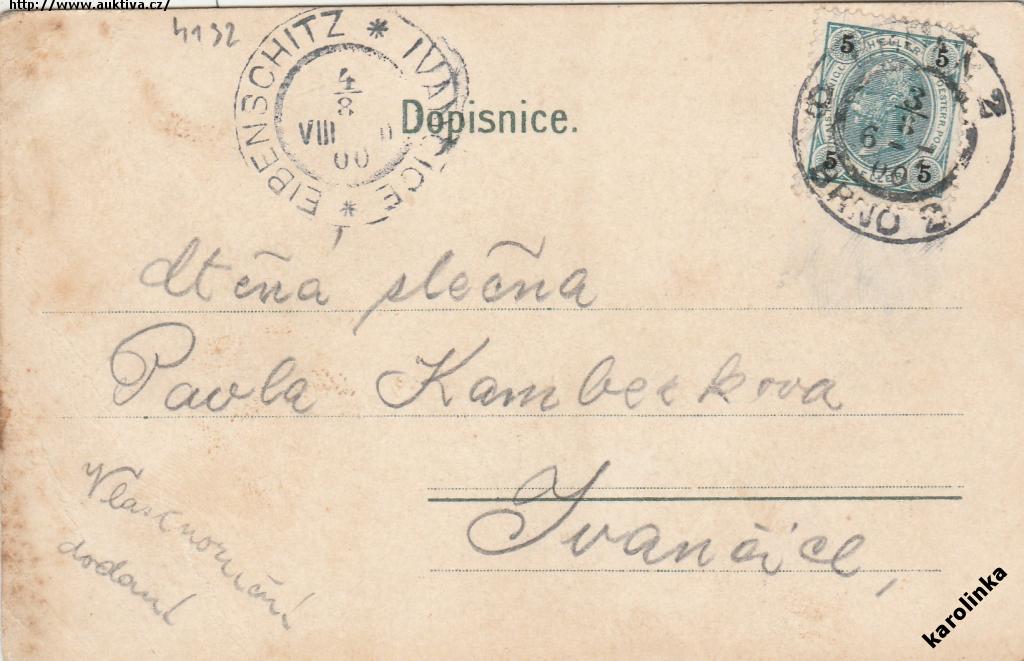 http://www.auktiva.cz/
4132
EIBENSCHITZ * IVANČICE *
4/8
VIII
00
Dopisnice.
5 HELLER 5
5 HELLER 5
BRNO 2
Ctěná slečna
Pavla Kambeskova
Ivančice,
Vlastnoruční
dodaní
karolinka